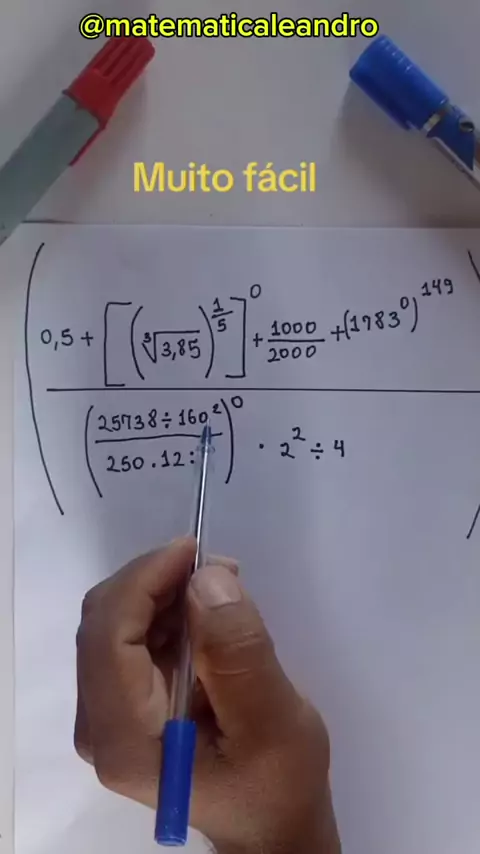 @matematicaleandro
Muito fácil
0,5 + [(∛3,85)^(1/5)]^0 + 1000/2000 + (1783^0)^149
(25738 ÷ 160²
250 . 12 :)^0 . 2² ÷ 4